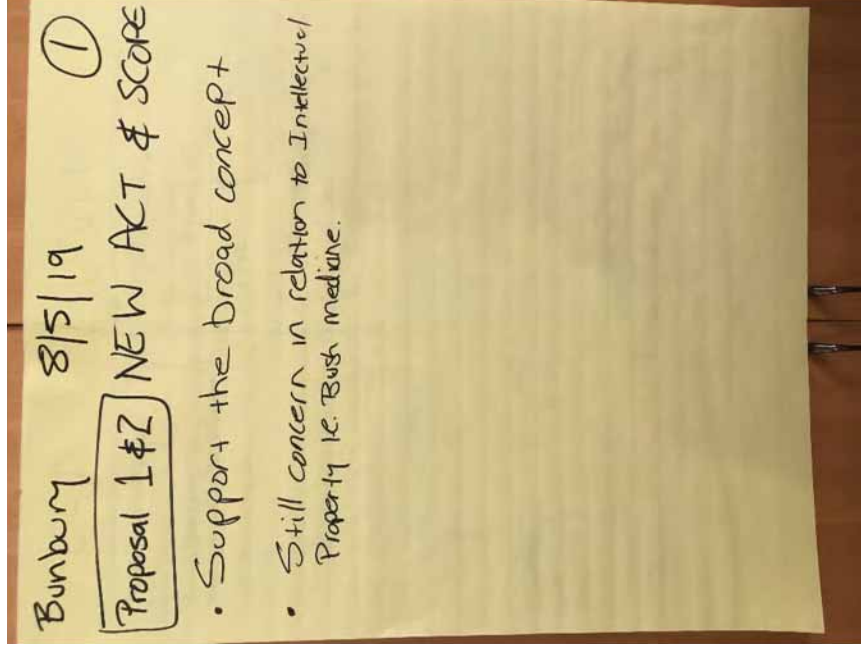 Bunbury 8/5/19 1
Proposal 1 & 2 NEW ACT & SCOPE
• Support the broad concept
• Still concern in relation to Intellectual
Property ie. Bush medicine.